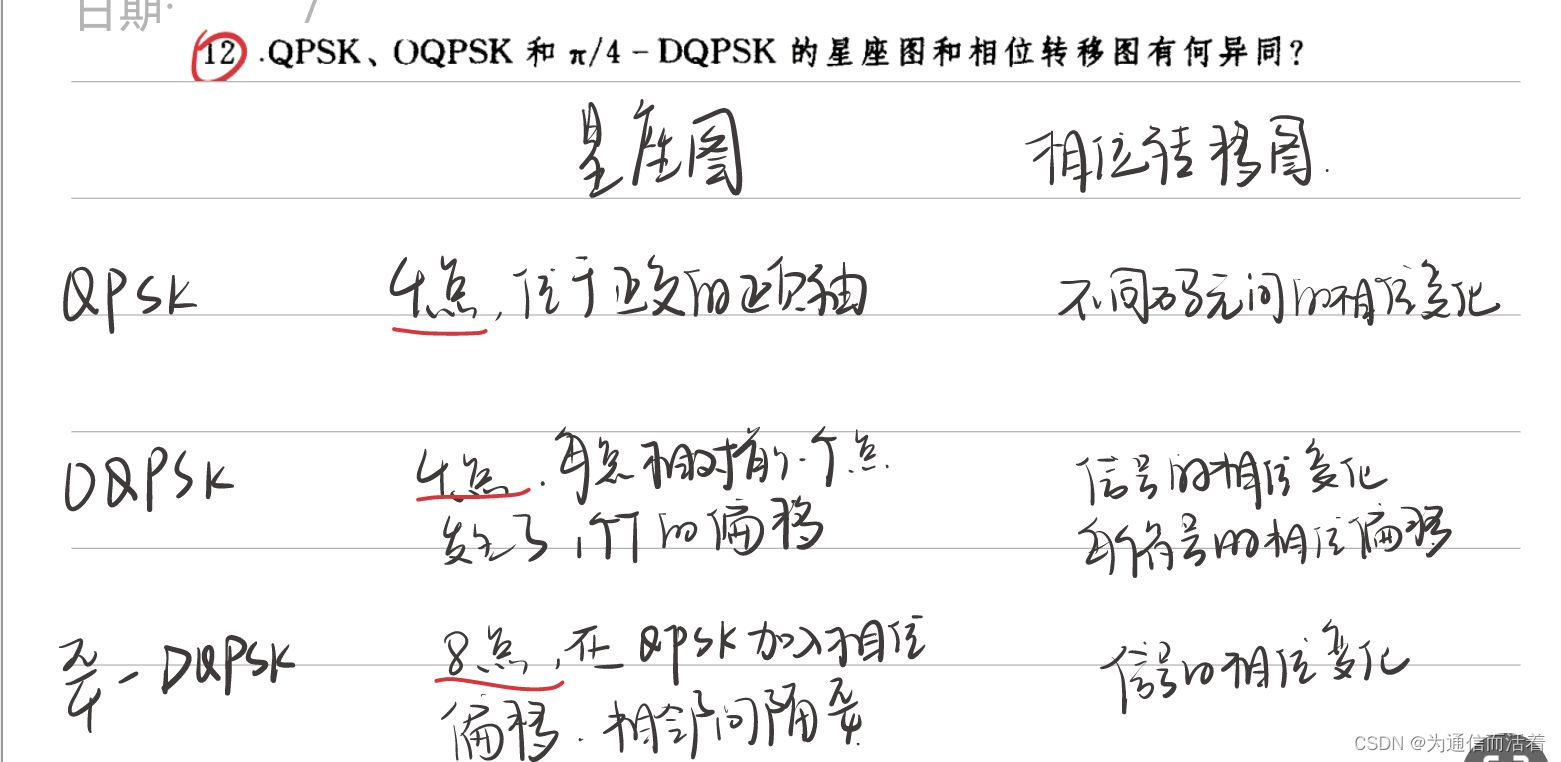 日期:
12.QPSK、OQPSK 和 π/4-DQPSK 的星座图和相位转移图有何异同?
星座图 相位转移图.
QPSK 4点,位于正交的正负轴 不同码元间的相位变化
OQPSK 4点.每点相对前一个点 信号的相位变化
发生了1个T的偏移 每个符号的相位偏移
π/4-DQPSK 8点,在QPSK加入相位 信号的相位变化
偏移.相邻间隔π/4
CSDN @为通信而活着